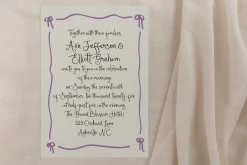 Together with their families
Ava Jefferson &
Elliott Graham
invite you to join in the celebration
of their marriage
on Sunday the seventeenth
of September two thousand twenty-five
at half past five in the evening
The Grand Blossom Hotel
523 Orchard Lane
Asheville NC